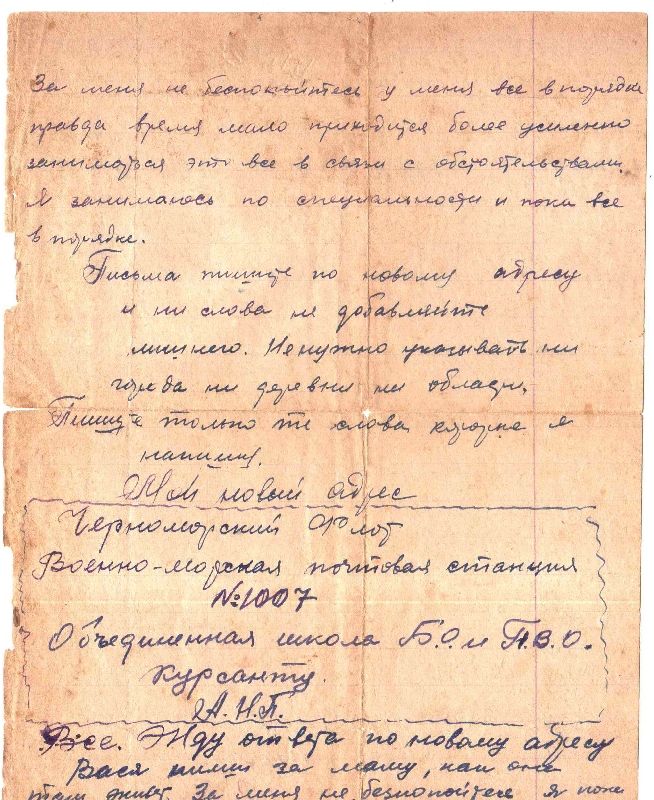 За меня не беспокойтесь у меня все в порядке
правда время мало приходится более усиленно
заниматься это все в связи с обстоятельствами.
Я занимаюсь по специальности и пока все
в порядке.
Письма пишите по новому адресу
и ни слова не добавляйте
лишнего. Не нужно указывать ни
города ни деревни ни области.
Пишите только те слова которые я
напишу.
Мой новый адрес
Черноморский Флот
Военно-морская почтовая станция
№1007
Объединенная школа Б.О. и П.В.О.
Курсанту.
А.Н.П.
Все. Жду ответа по новому адресу
Вася пиши за маму, как она
там живт. За меня не безпокойтесь я пока